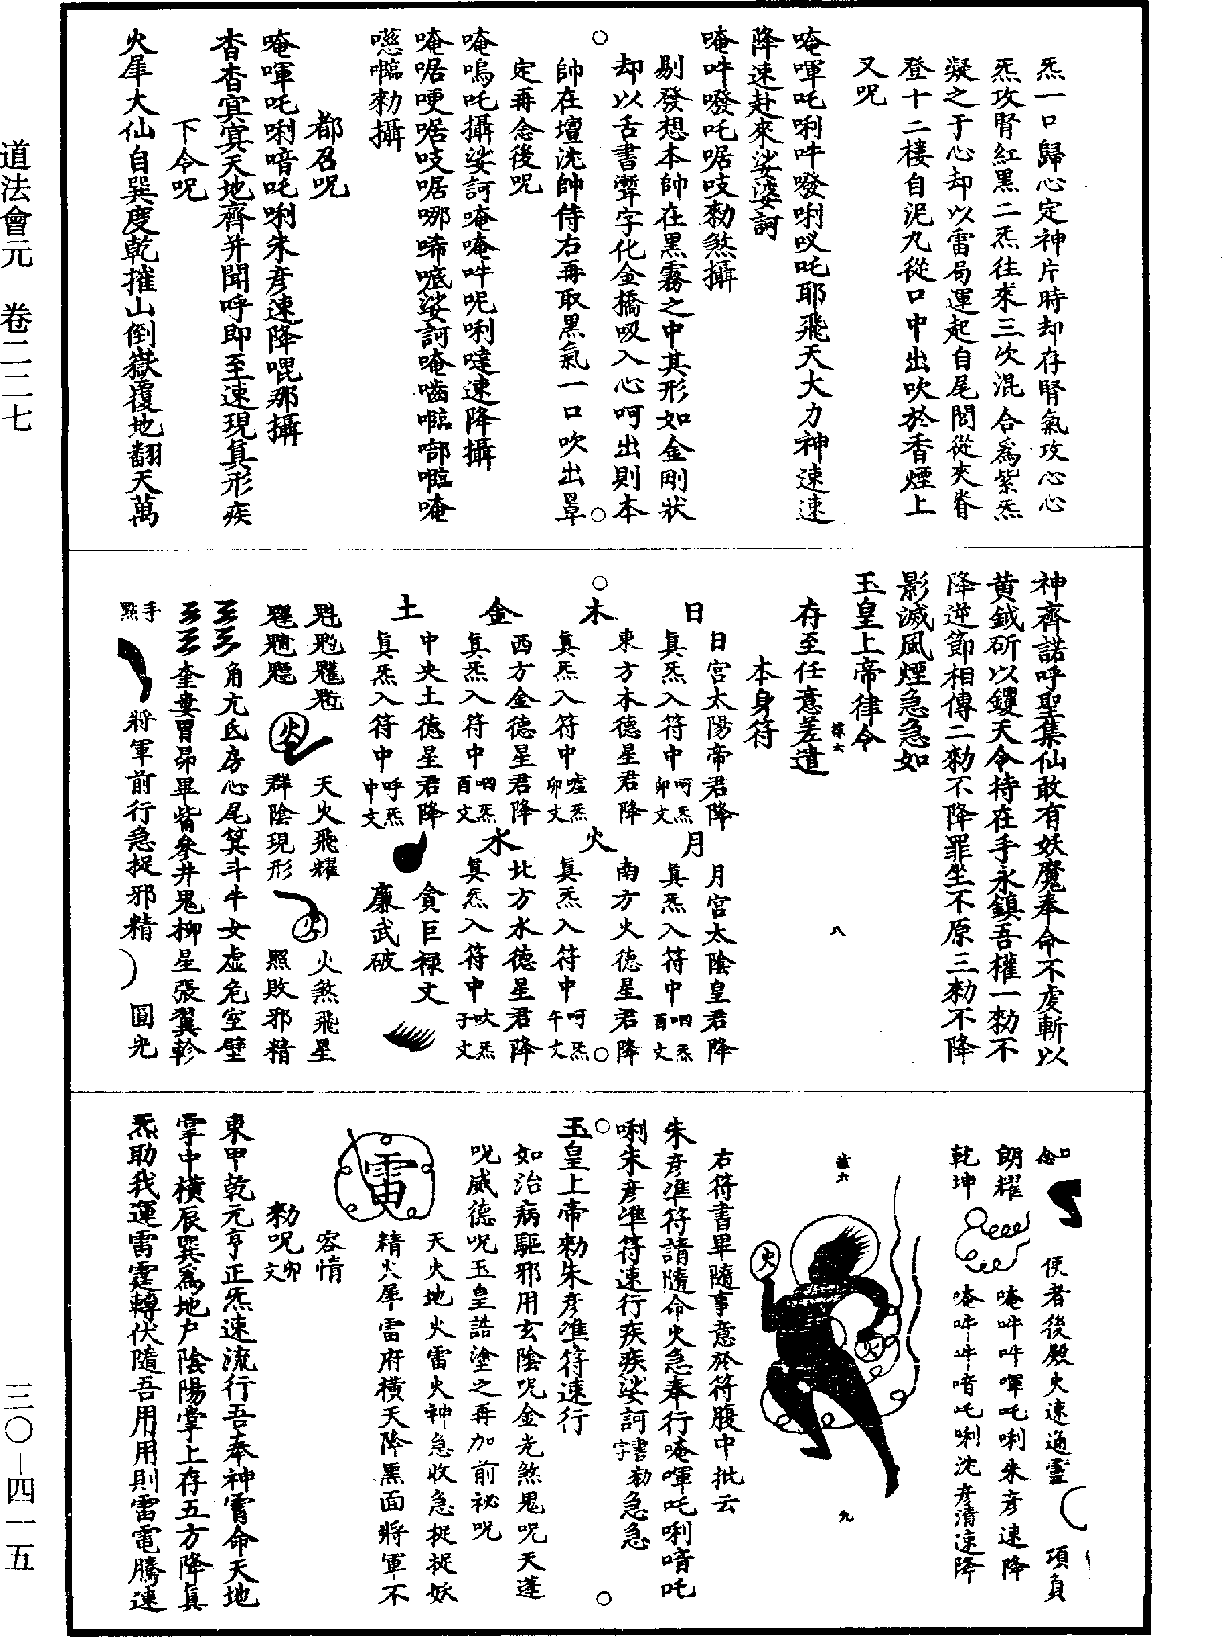 炁一口歸心定神片時却存腎氣攻心心
炁攻腎紅黑二炁往來三次混合為紫炁
凝之于心却以雷局運起自尾閭從夾脊
登十二樓自泥九從口中出吹於香煙上
又呪
唵㖠吒唎吽發唎㕥吒耶飛天大力神速速
降速赴來娑婆訶
唵吽發吒㖶吱勑煞攝
剔發想本帥在黑霧之中其形如金剛狀
却以舌書霹字化金橋吸入心呵出則本
帥在壇沈帥侍右再取黑氣一口吹出罩
定再念後呪
唵嗚吒攝娑訶唵唵吽呢唎噠速降攝
唵㖶哽㖶吱㖶哪唏嚨娑訶唵嚙㘕嘟㘕唵
㘕勑攝
都召呪
唵㖠吒唎喑吒唎朱彥速降唲那攝
杳杳冥冥天地齊并聞呼即至速現真形疾
下令呪
火犀大仙自巽度乾摧山倒嶽覆地翻天萬
神齊諾呼聖集仙敢有妖魔奉命不虔斬以
黃鉞斫以钁天令持在手永鎮吾權一勑不
降逆節相傳二勑不降罪坐不原三勑不降
影滅風煙急急如
玉皇上帝律令
存至任意差遣
本身符
日 日宮太陽帝君降真炁入符中 呵炁卯文
月 月宮太陰皇君降真炁入符中 呬炁酉文
木 東方木德星君降真炁入符中 噓炁卯文
火 南方火德星君降真炁入符中 呵炁午文
金 西方金德星君降真炁入符中 呬炁酉文
水 北方水德星君降真炁入符中 吹炁子文
土 中央土德星君降真炁入符中 呼炁中文
貪巨祿文
廉武破
天火飛耀 火煞飛星
群陰現形 照敗邪精
角亢氐房心尾箕斗牛女虛危室壁
奎婁胃昴畢觜參井鬼柳星張翼軫
手
點
將軍前行急捉邪精 圓光
使者後殿火速通靈 項負
朗耀 唵吽吽㖠吒唎朱彥速降
乾坤 唵吽吽喑吒唎沈彥清速降
火
火
右符書畢隨事意於符腹中批云
朱彥準符請隨命火急奉行唵㖠吒唎喑吒
唎朱彥準符速行疾疾娑訶 書勑字 急急
玉皇上帝勑朱彥準符速行
如治病驅邪用玄陰呪金光煞鬼呪天蓬
呪威德呪玉皇誥塗之再加前祕呪
天火地火雷火神急收急捉捉妖
精火犀雷府橫天降黑面將軍不
容情
雷
勑呪 卯文
東甲乾元亨正炁速流行吾奉神霄命天地
掌中橫辰巽為地戶陰陽掌上存五方降真
炁助我運雷霆轉伏隨吾用用則雷電騰速
道法會元 卷二二七
三〇—四一五